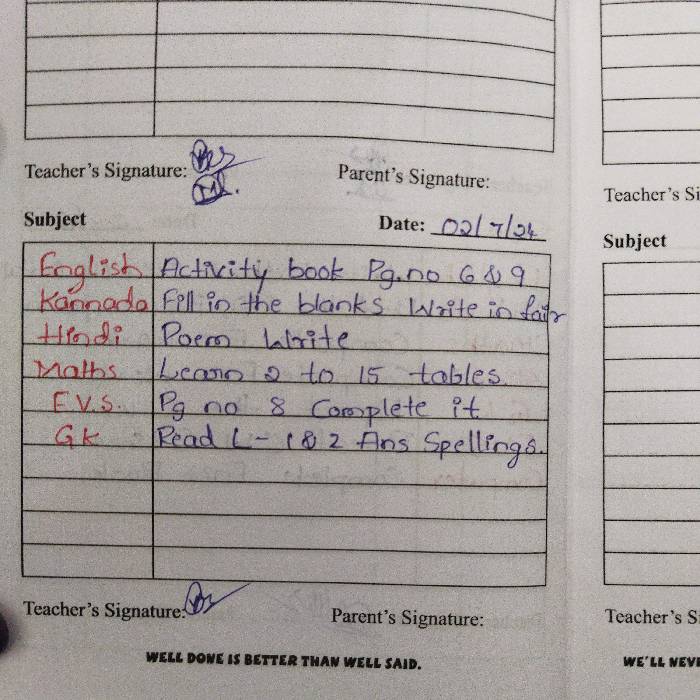 Teacher's Signature: Parent's Signature:
Teacher's Si
Subject Date: 02/7/24
Subject
English Activity book Pg.no 6 & 9
Kannada Fill in the blanks Write in fair
Hindi Poem Write
Maths Learn 2 to 15 tables
E.V.S. Pg no 8 Complete it
GK Read L-1 & 2 Ans Spellings.
Teacher's Signature: Parent's Signature:
Teacher's S
WELL DONE IS BETTER THAN WELL SAID.
WE'LL NEVE